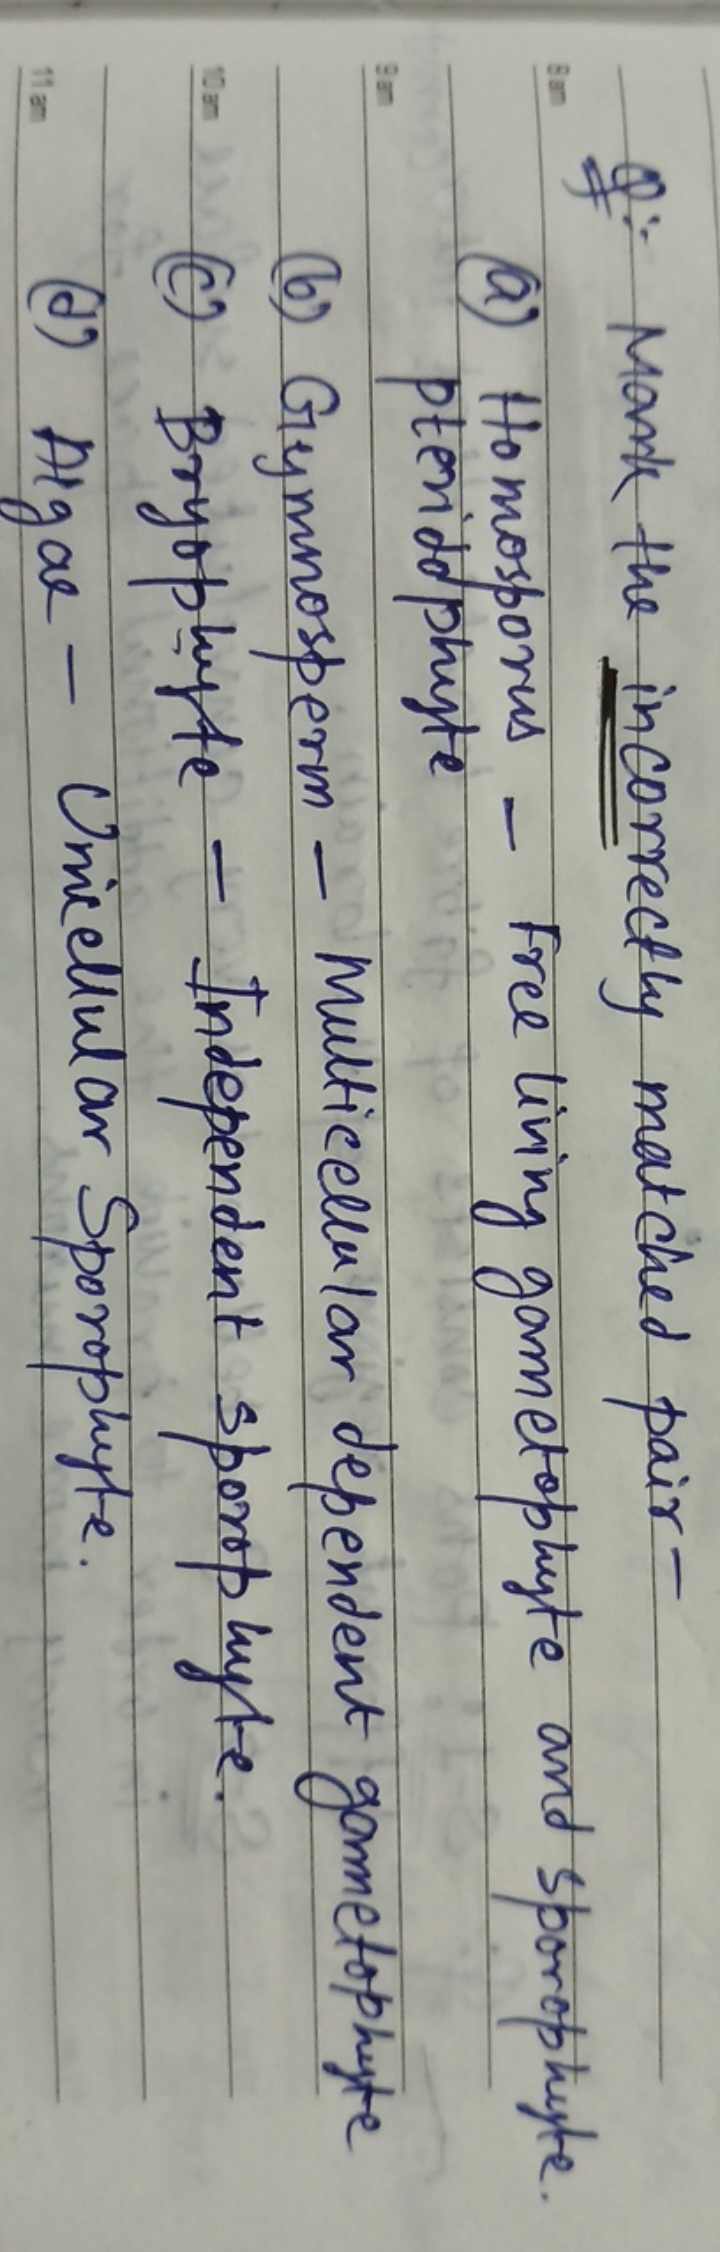 8 am
Q:- Mark the incorrectly matched pair-
(a) Homosporus - Free living gametophyte and sporophyte.
pteridophyte
9 am
(b) Gymnosperm - Multicellular dependent gametophyte
10 am
(c) Bryophyte - Independent sporophyte.
11 am
(d) Algae - Unicellular Sporophyte.